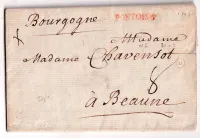 Bourgogne
Madame
Madame Chavensot
8
à Beaune